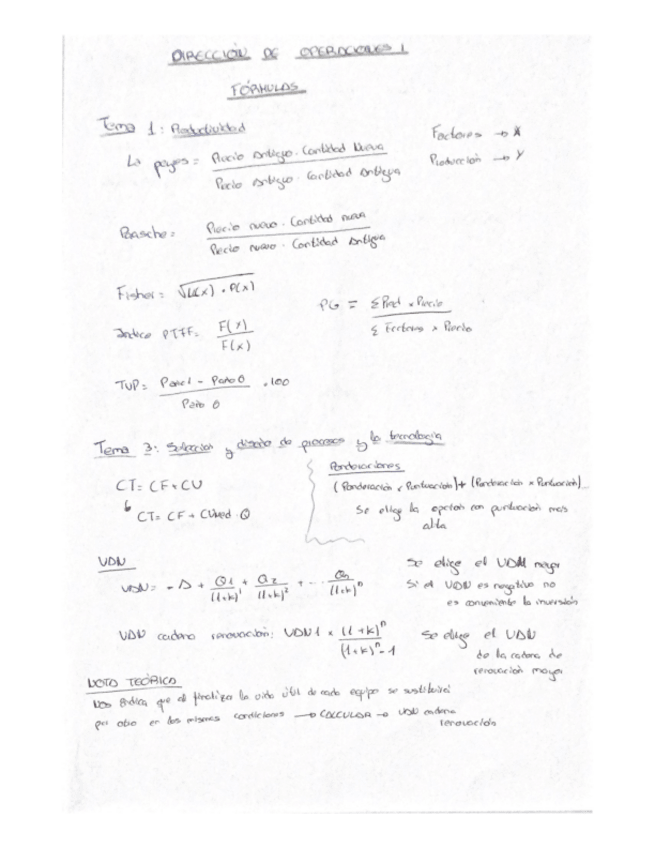 DIRECCIÓN DE OPERACIONES 1
FÓRMULAS
Tema 1: Productividad
Factores → X
Producción → Y
La peyes = Precio antiguo · Cantidad Nueva / Precio antiguo · Cantidad Antigua
Paasche = Precio nuevo · Cantidad nueva / Precio nuevo · Cantidad Antigua
Fisher = √L(x) · P(x)
PG = Σ Prod × Precio / Σ Factores × Precio
Índice PTFF = F(Y) / F(X)
TVP = - / · 100
Tema 3: Selección y diseño de procesos y la tecnología
Ponderaciones
(Ponderación × Puntuación) + (Ponderación × Puntuación)
Se elige la opción con puntuación más
alta
CT = CF + CV
CT = CF + CVmed · Q
VAN
VAN = - A + Q1 / (1+k)^1 + Q2 / (1+k)^2 + ... Qn / (1+k)^n
Se elige el VAN mayor
Si el VAN es negativo no
es conveniente la inversión
VAN cadena renovación: VAN1 × (1+k)^n / (1+k)^n - 1
Se elige el VAN
de la cadena de
renovación mayor
NOTA TEÓRICA
Nos indica que al finalizar la vida útil de cada equipo se sustituirá
por otro en las mismas condiciones → CALCULAR → VAN cadena
renovación